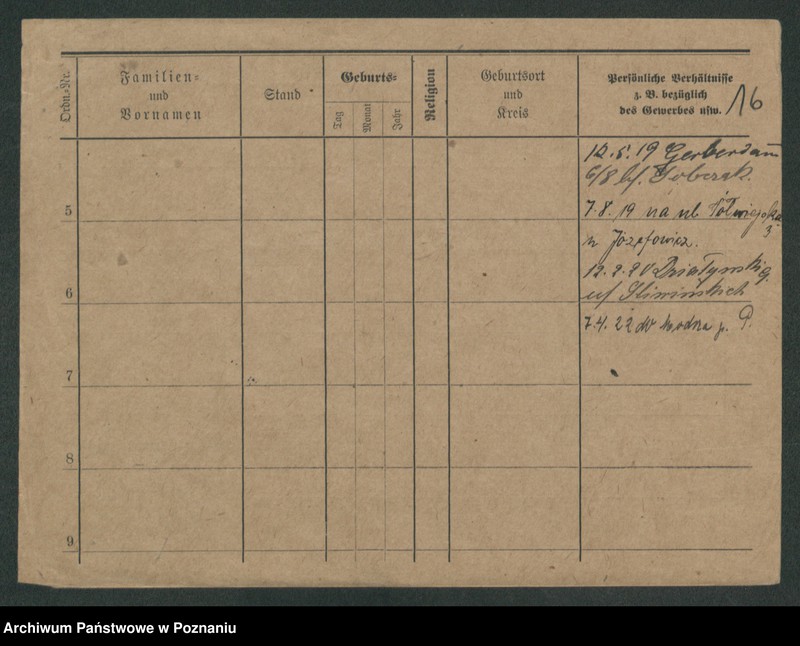 Ordn.-Nr.
Familien=
und
Vornamen
Stand
Geburts=
Tag
Monat
Jahr
Religion
Geburtsort
und
Kreis
Persönliche Verhältnisse
z. B. bezüglich
des Gewerbes usw.
16
12.5.19 Gerberdamm
6/8 Sobczak.
5
7.8.19 na ul Półwiejska
3
Józefowicz.
12.2.20 Działyńskich
6
Śliwińskich
7.4.22 do p. P.
7
8
9
Archiwum Państwowe w Poznaniu